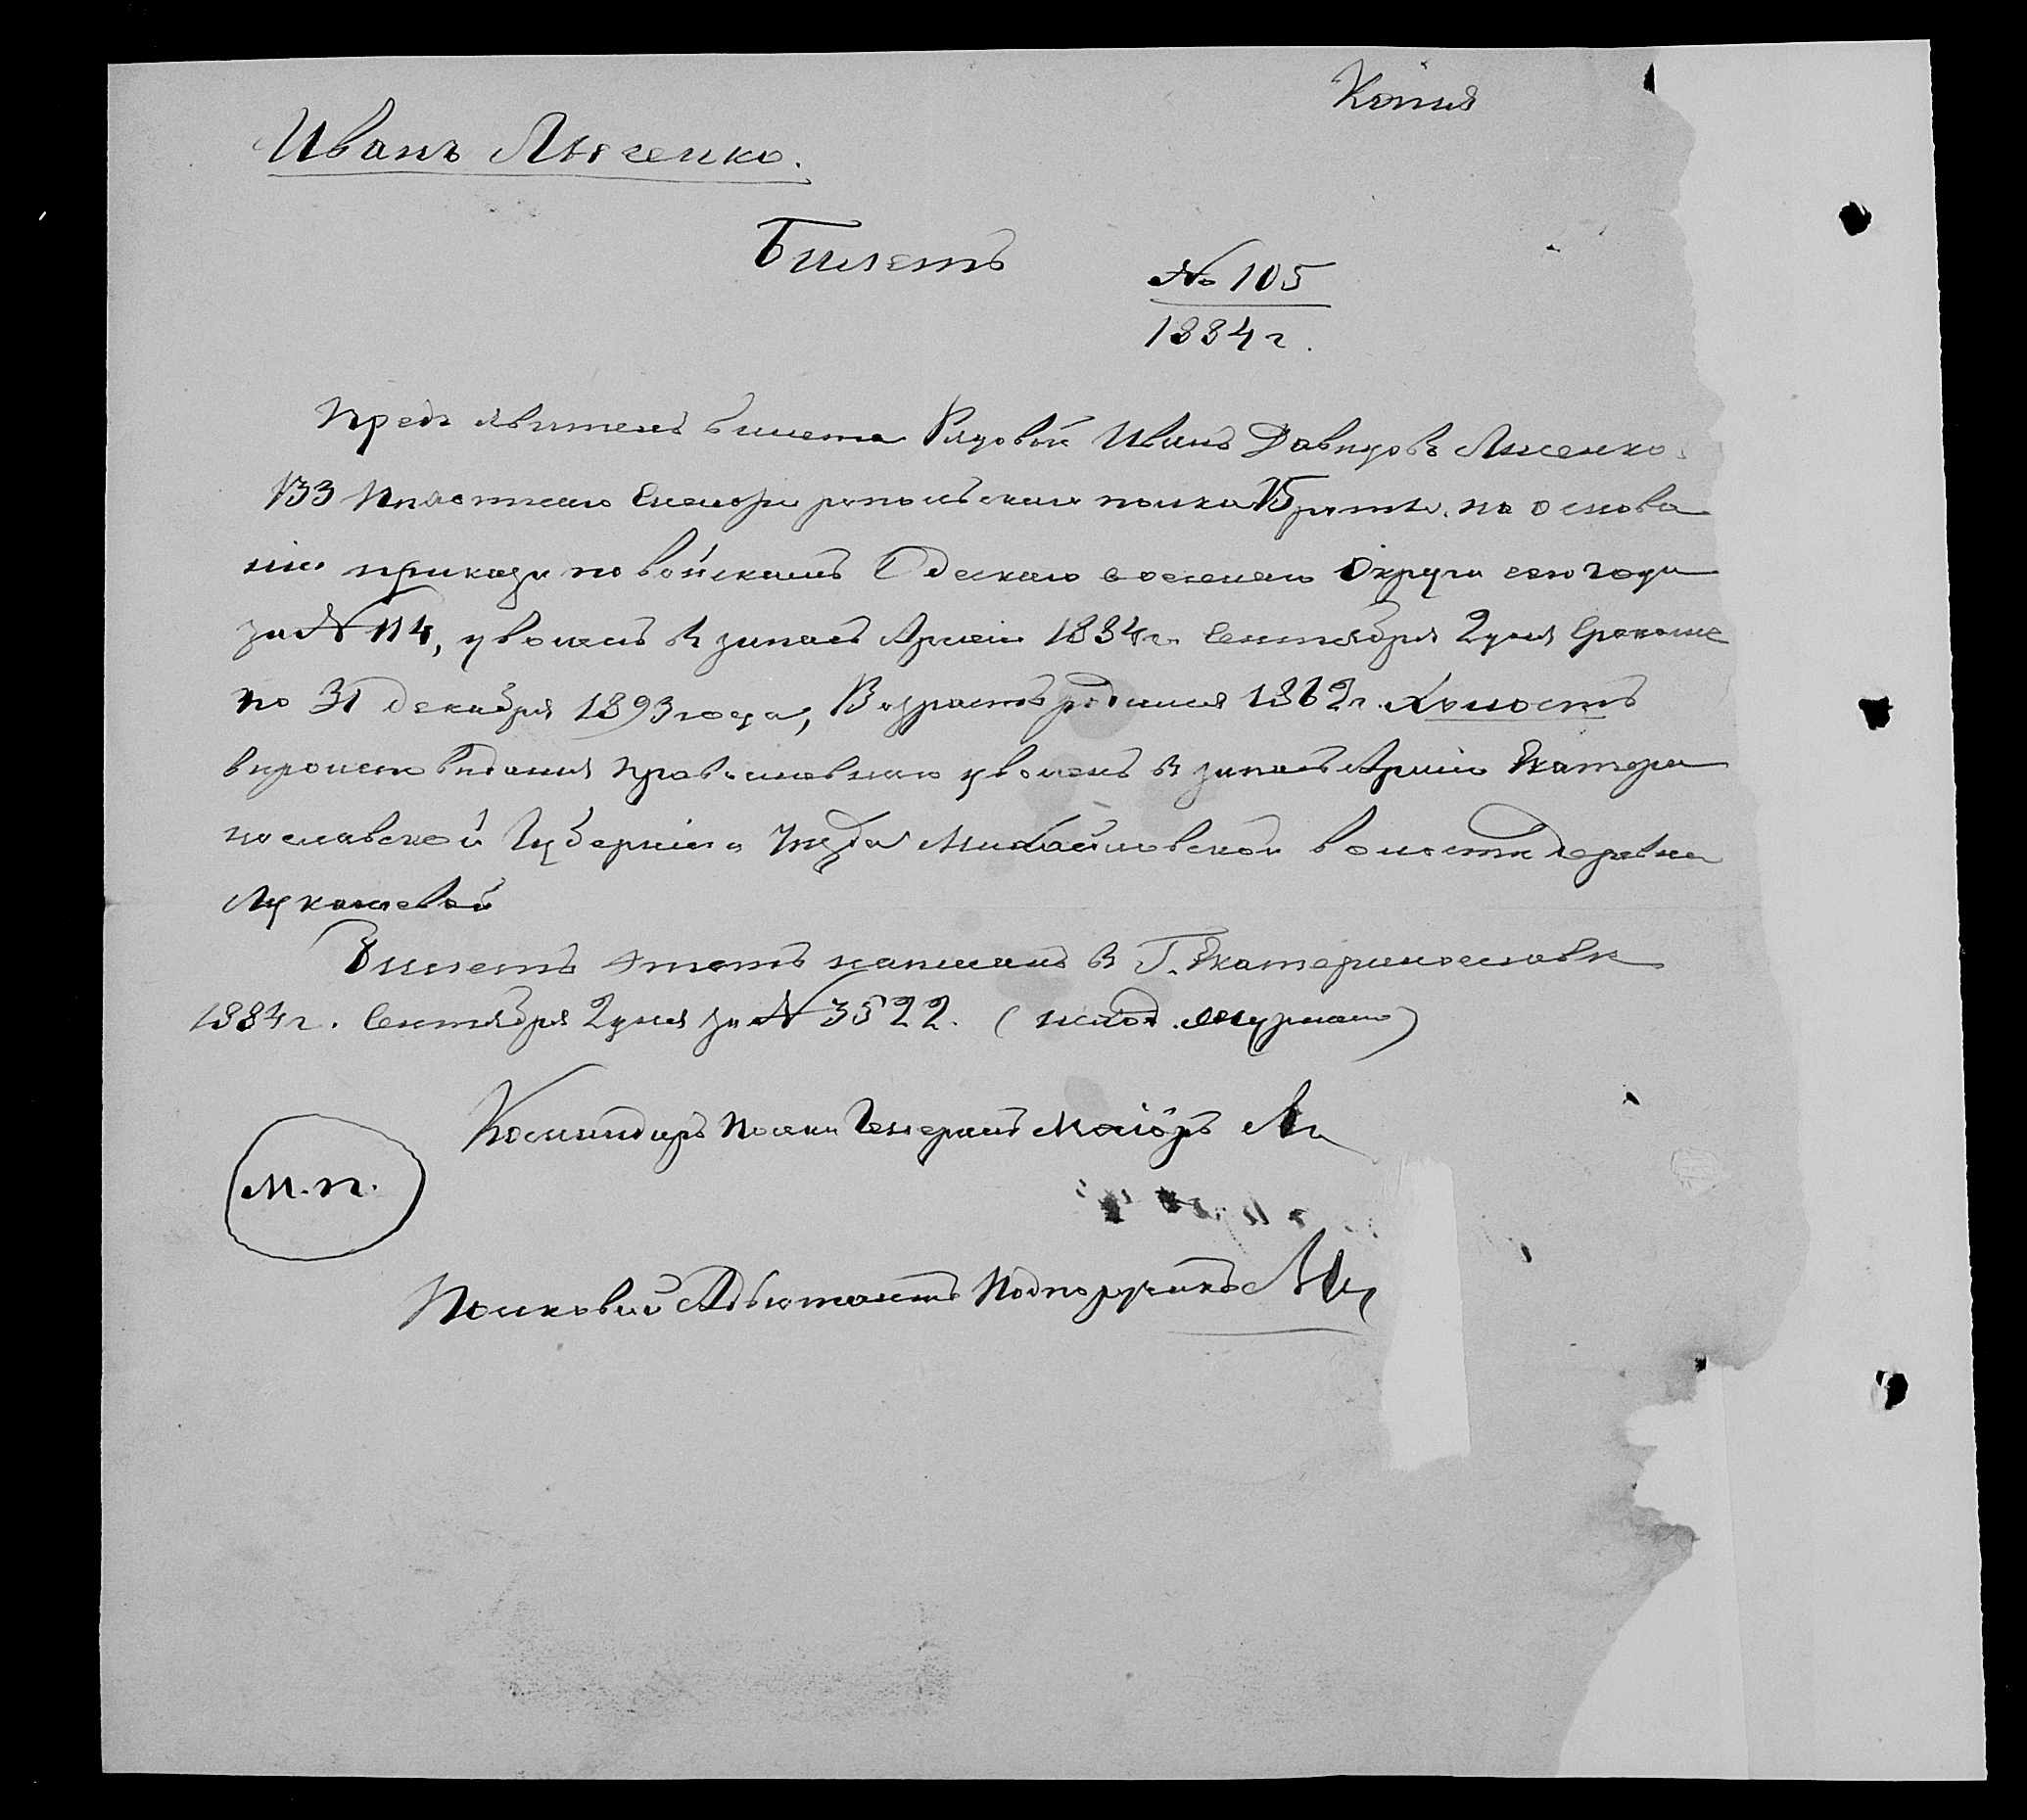 Копия
Иванъ Лысенко.
Билетъ
№ 105
1884 г.
Предъявитель билета Рядовой Иванъ Давидовъ Лысенко
133 Пѣхотнаго Симферопольскаго полка 15 роты. на основа
ніи приказа по войскамъ Одескаго военнаго Округа сего года
за № 114, уволенъ въ запасъ Арміи 1884 г. Сентября 2 дня Срокомъ
по 31 декабря 1893 года, Возрастъ родился 1862 г. Холостъ
вѣроисповѣданія православнаго уволенъ въ запасъ Арміи Екатери
нославской Губерніи и Уезда Михайловской волости деревня
Лукашевой
Билетъ этотъ написанъ въ Г. Екатеринославѣ
1884 г. Сентября 2 дня за № 3522. (исход. журналъ)
Командиръ Полка Генералъ Маіоръ
М.П.
Полковый Адъютантъ Подпоручикъ